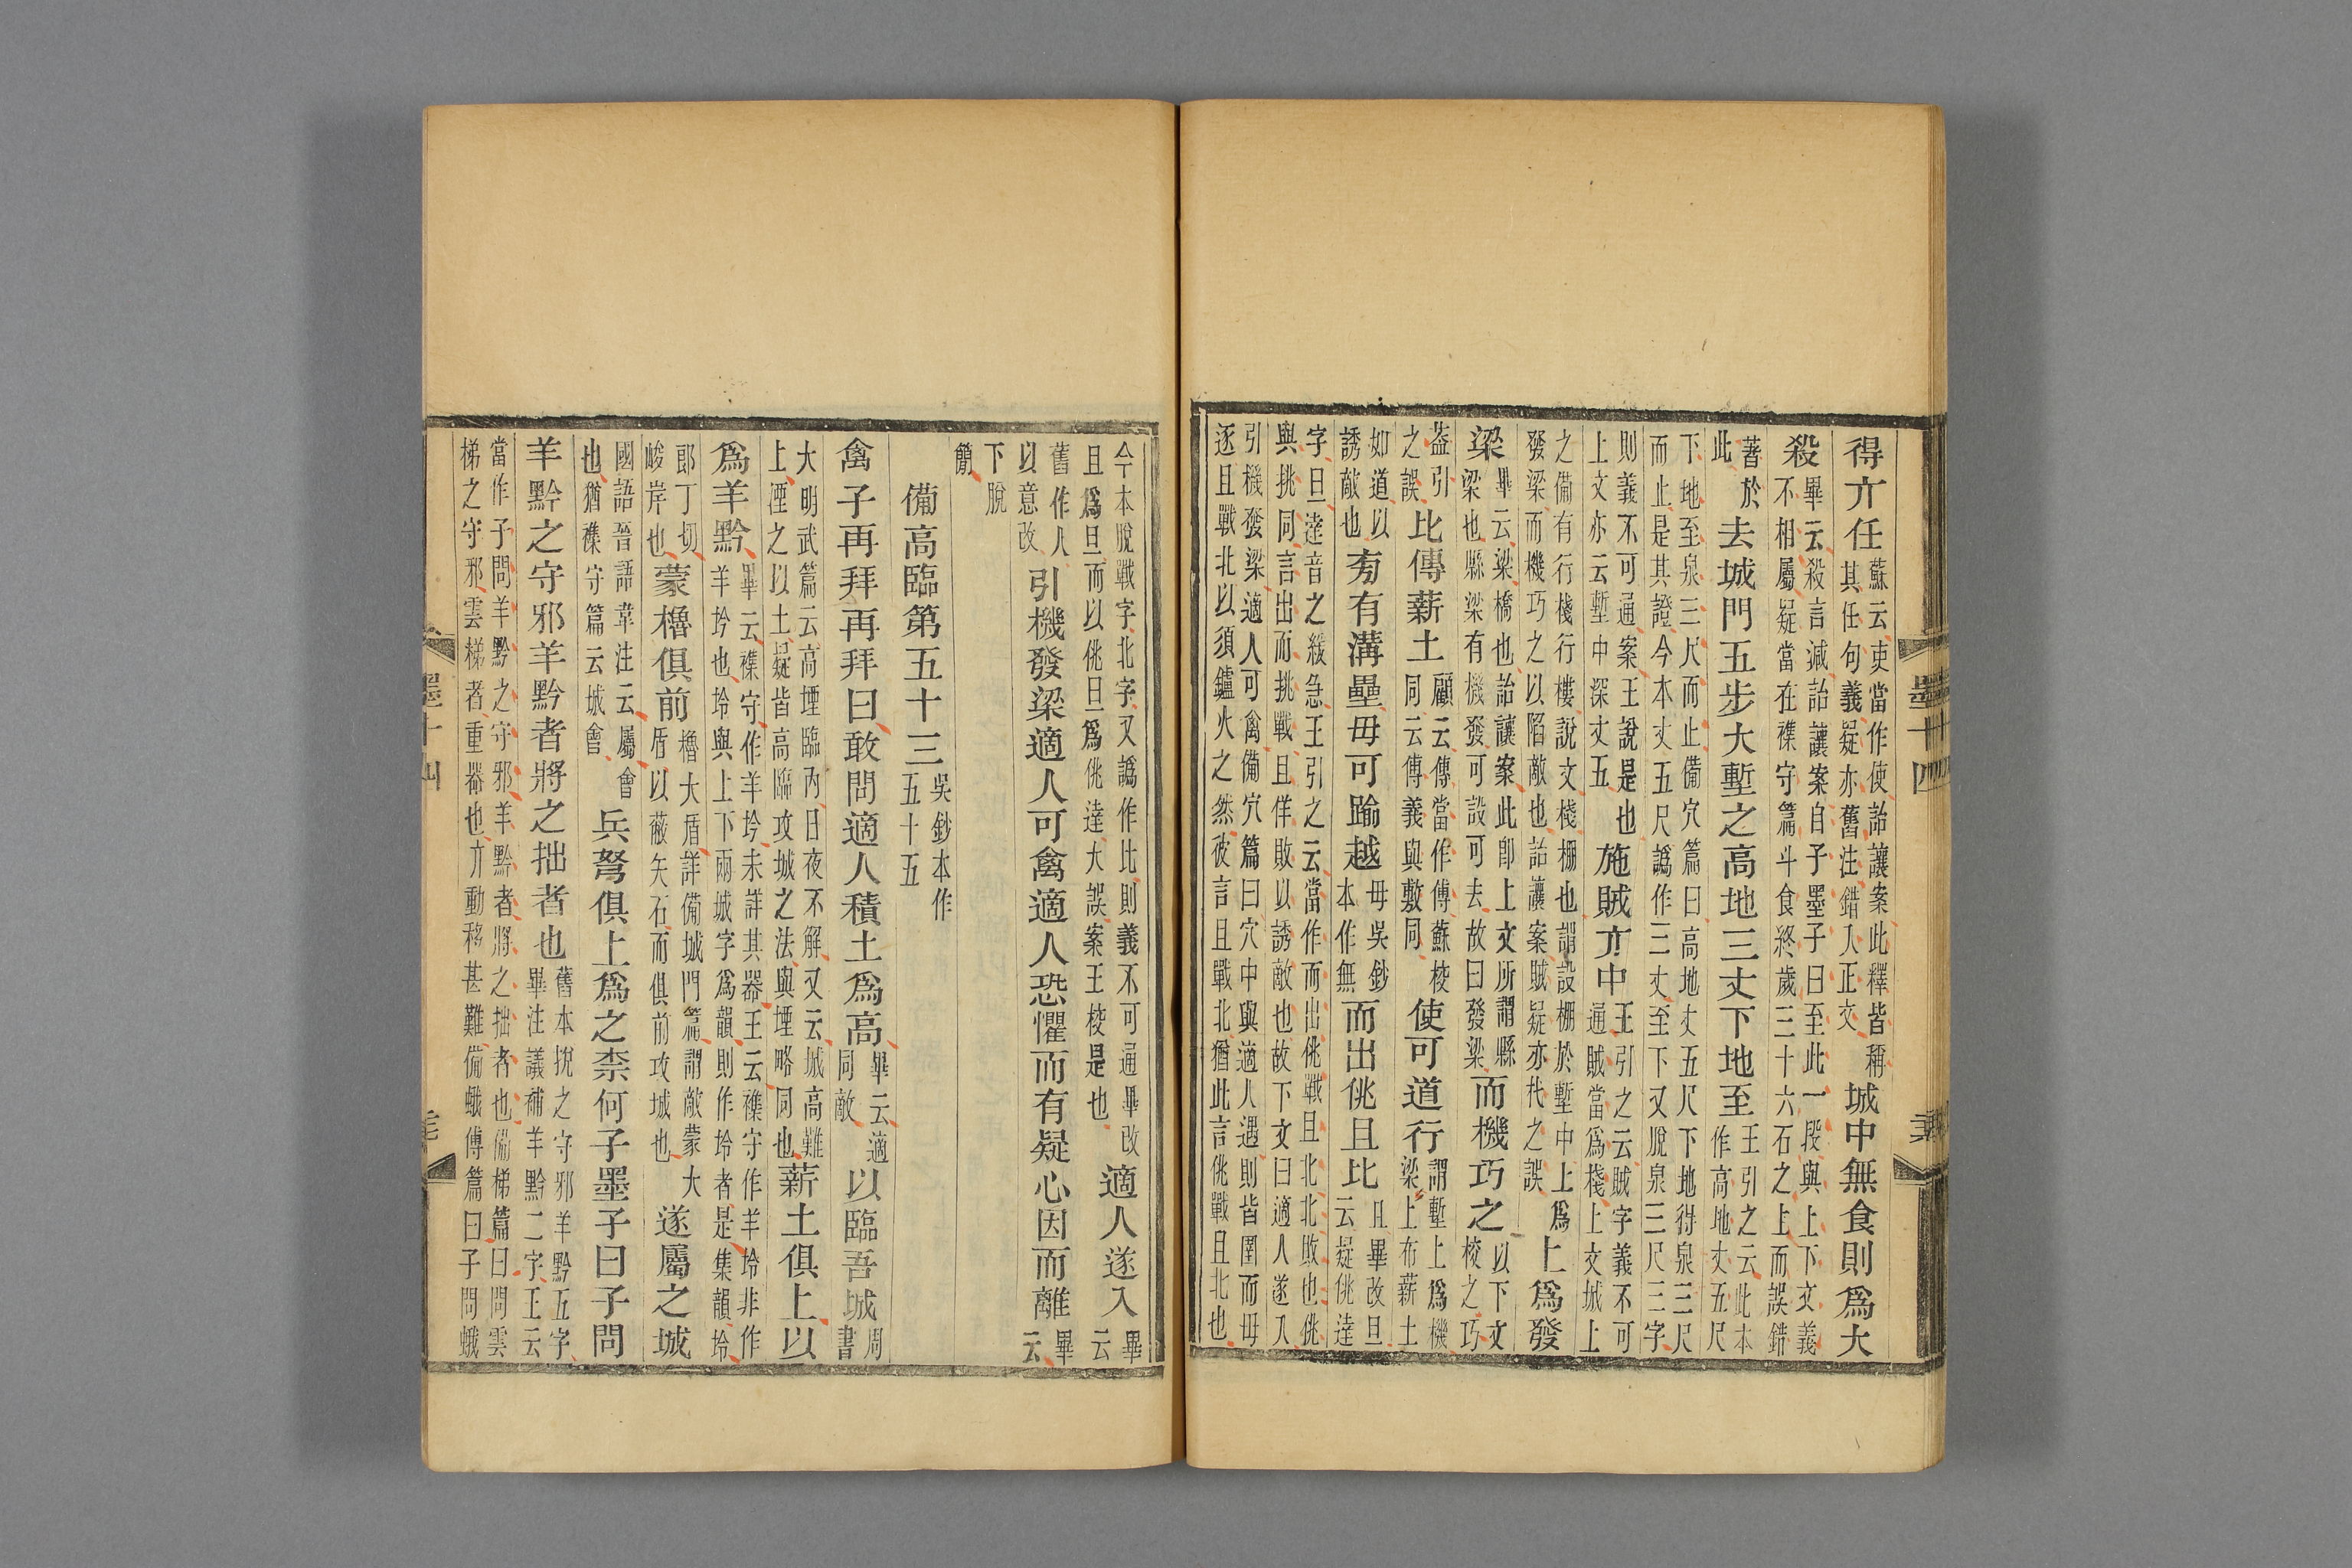 得亣任
蘇云吏當作使詒讓案此釋皆稱
其任句義疑亦舊注錯入正文
城中無食則爲大
殺
畢云殺言減詒讓案自子墨子曰至此一段與上下文義
不相屬疑當在襍守篇斗食終歲三十六石之上而誤錯
著於
此
去城門五步大塹之高地三丈下地至
王引之云此本
作高地丈五尺
下地至泉三尺而止備穴篇曰高地丈五尺下地得泉三尺
而止是其證今本丈五尺譌作三丈至下又脫泉三尺三字
則義不可通案王說是也
上文亦云塹中深丈五
施賊亣中
王引之云賊字義不可
通賊當爲棧上文城上
之備有行棧行樓說文棧棚也謂設棚於塹中上爲
發梁而機巧之以陷敵也詒讓案賊疑亦代之誤
上爲發
梁
畢云梁橋也詒讓案此卽上文所謂縣
梁也縣梁有機發可設可去故曰發梁
而機巧之
以下文
校之巧
葢引
之誤
比傳薪土
顧云傳當作傅蘇校
同云傅義與敷同
使可道行
謂塹上爲機
梁上布薪土
如道以
誘敵也
㫄有溝壘毋可踰越
毋吳鈔
本作無
而出佻且比
且畢改旦
云疑佻達
字旦達音之緩急王引之云當作而出佻戰且北北敗也佻
與挑同言出而挑戰且佯敗以誘敵也故下文曰適人遂入
引機發梁適人可禽備穴篇曰穴中與適人遇則皆圉而毋
逐且戰北以須鑪火之然彼言且戰北猶此言佻戰且北也
今本脫戰字北字又譌作比則義不可通畢改
且爲旦而以佻旦爲佻達大誤案王校是也
適人遂入
畢
云
舊作人
以意改
引機發梁適人可禽適人恐懼而有疑心因而離
畢
云
下脫
簡
備高臨第五十三
吳鈔本作
五十五
禽子再拜再拜曰敢問適人積土爲高
畢云適
同敵
以臨吾城
周
書
大明武篇云高堙臨內日夜不解又云城高難
上湮之以土疑皆高臨攻城之法與堙略同也
薪土俱上以
爲羊黔
畢云襍守作羊坽未詳其器王云襍守作羊坽非作
羊坅也坽與上下兩城字爲韻則作坽者是集韻坽
郎丁切
峻岸也
蒙櫓俱前
櫓大盾詳備城門篇謂敵蒙大
盾以蔽矢石而俱前攻城也
遂屬之城
國語晉語韋注云屬會
也猶襍守篇云城會
兵弩俱上爲之柰何子墨子曰子問
羊黔之守邪羊黔者將之拙者也
舊本挩之守邪羊黔五字
畢注議補羊黔二字王云
當作子問羊黔之守邪羊黔者將之拙者也備梯篇曰問雲
梯之守邪雲梯者重器也亣動移甚難備蛾傅篇曰子問蛾
墨十四